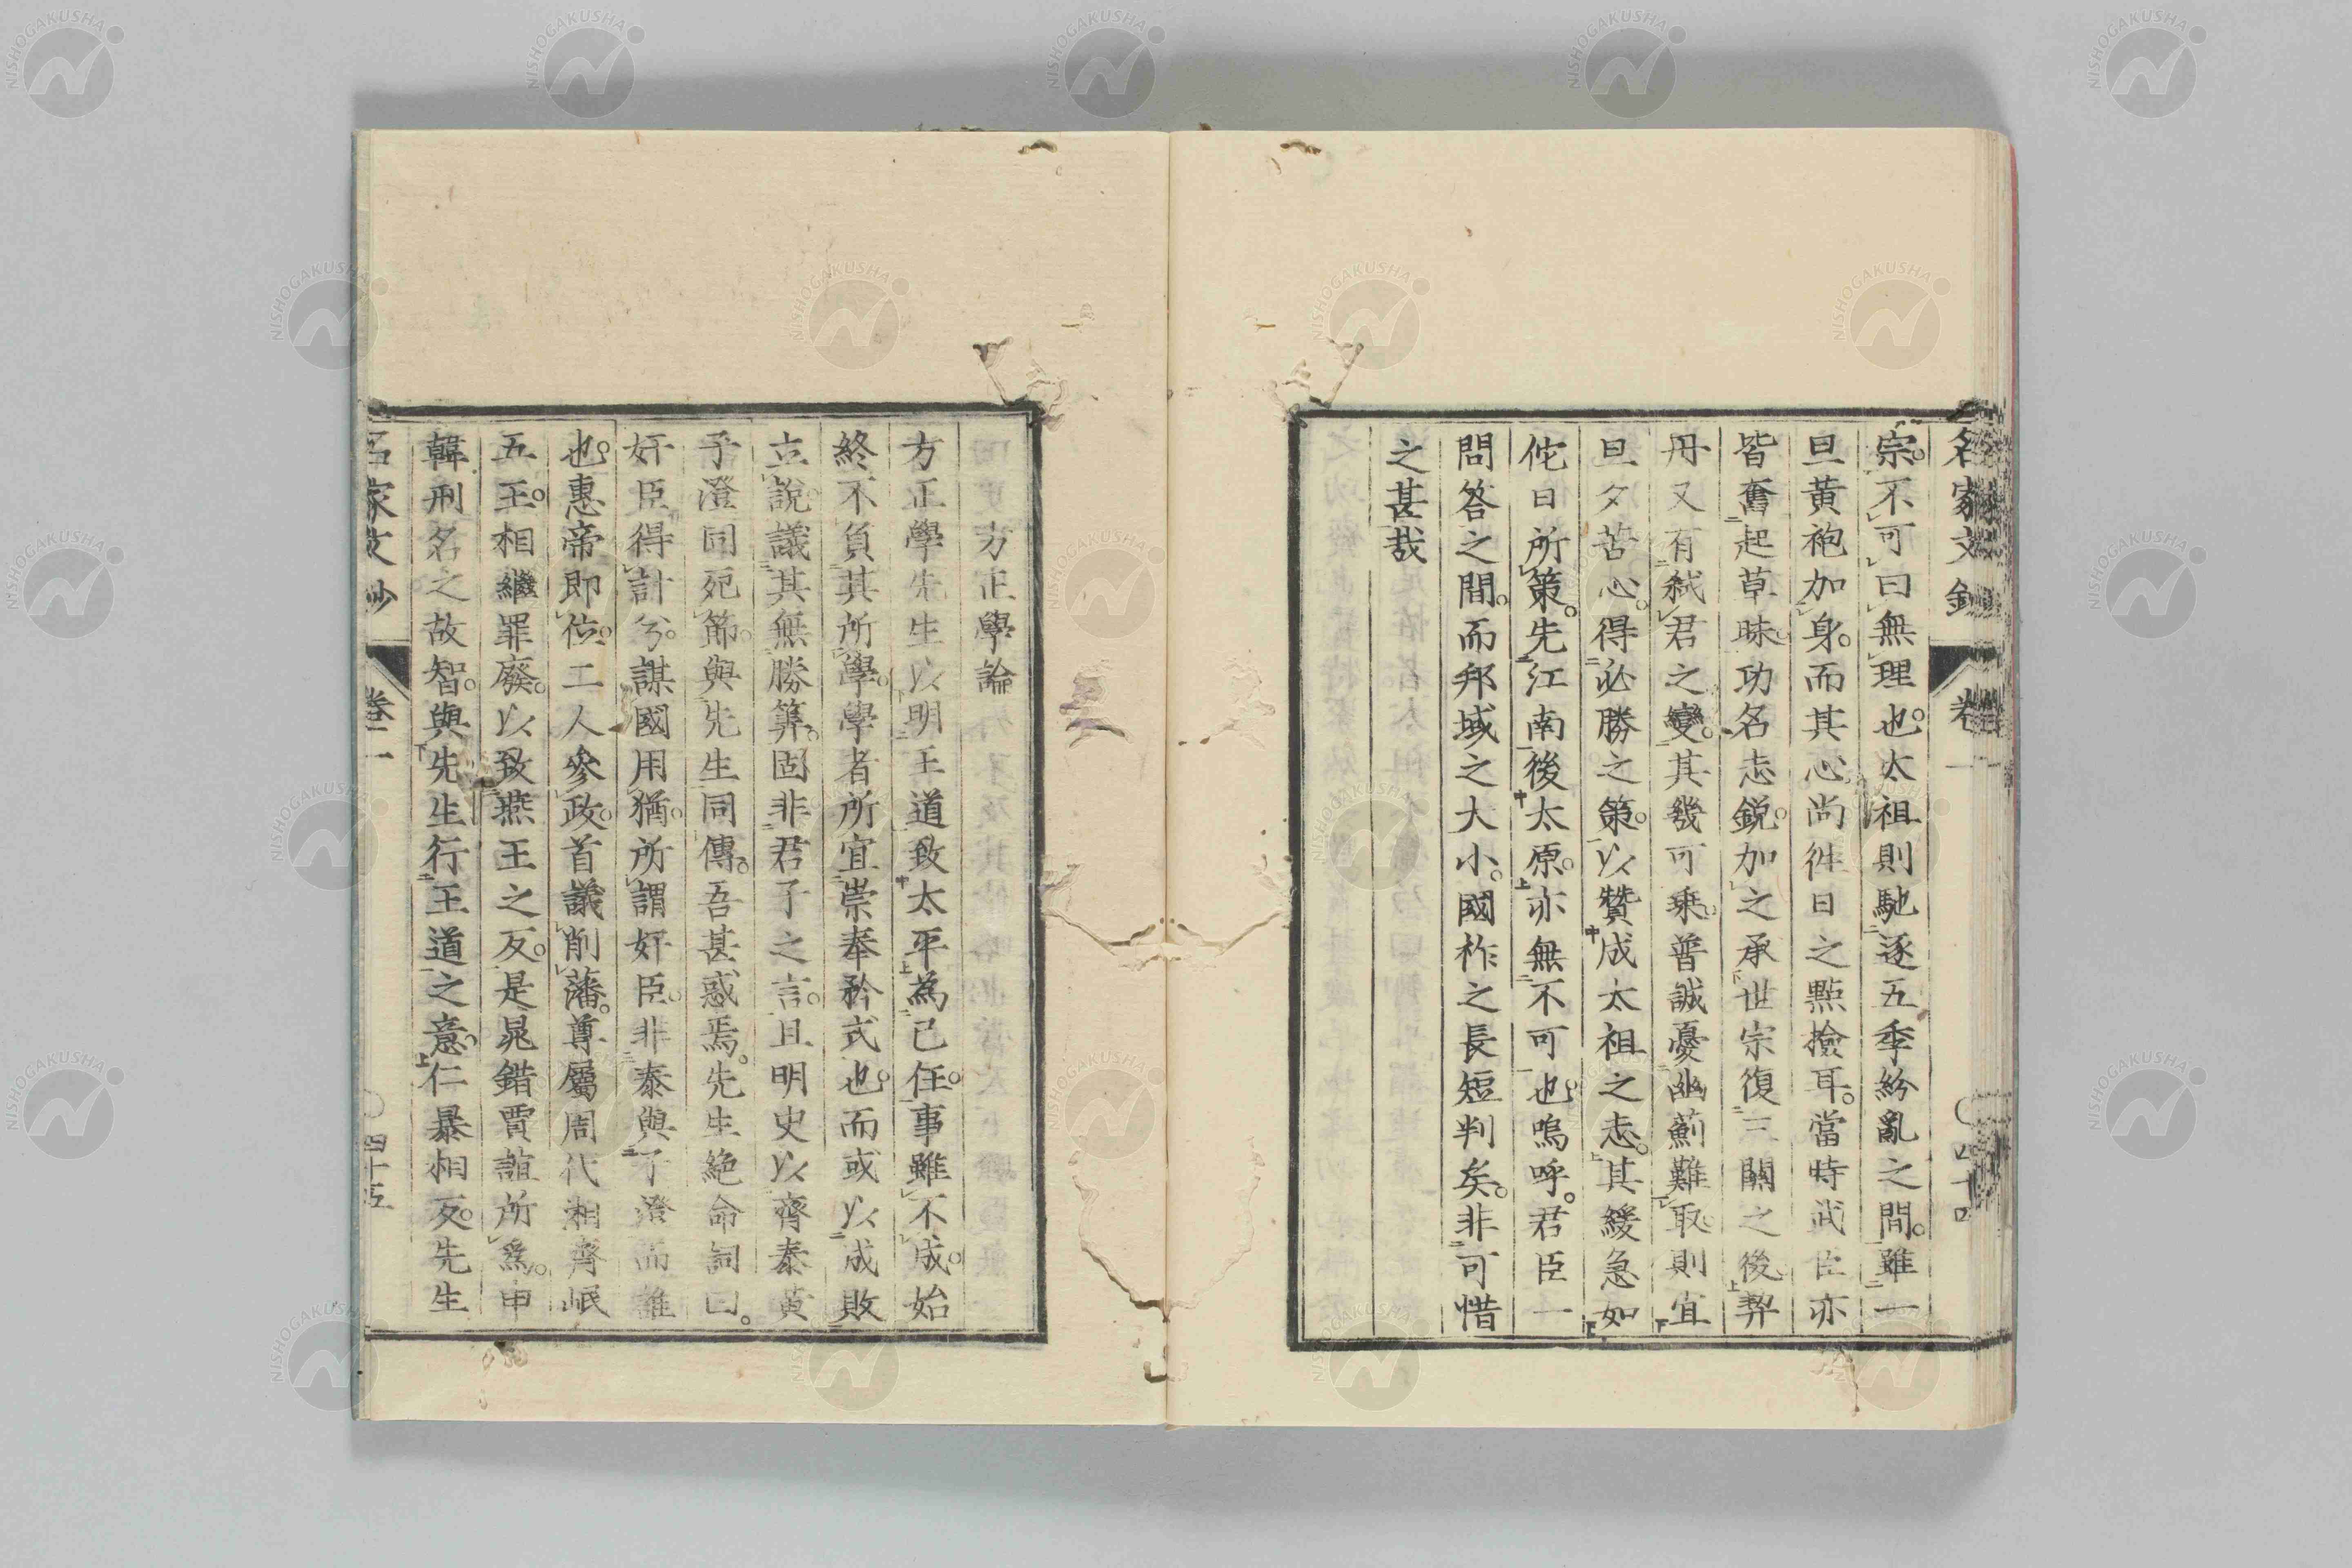 名家文鈔
卷一
四十四
宗。不可曰無理也。太祖則馳逐五季紛亂之間。雖一
旦黃袍加身。而其志尚徃日之點撿耳。當時武臣亦
皆奮起草昧。功名志鋭。加之承世宗復三關之後。契
丹又有弑君之變。其幾可乘。普誠憂幽薊難取。則宜
旦夕苦心。得必勝之策。以贊成太祖之志。其緩急如
佗日所策。先江南後太原。亦無不可也。嗚呼。君臣一
問答之間。而邦域之大小。國柞之長短判矣。非可惜
之甚哉
方正學論
方正學先生以明王道致太平為己任。事雖不成。始
終不負其所學。學者所宜崇奉矜式也。而或以成敗
立說。議其無勝筭。固非君子之言。且明史以齊泰黃
子澄同死節。與先生同傳。吾甚惑焉。先生絶命詞曰。
奸臣得計兮。謀國用猶。所謂奸臣。非泰與子澄而誰
也。惠帝即位。二人參政。首議削藩。尊屬周代湘齊岷
五王。相繼罪廢。以致燕王之反。是晁錯賈誼所為。申
韓刑名之故智。與先生行王道之意。仁暴相反。先生
名家文鈔
卷二
四十五
NISHOGAKUSHA